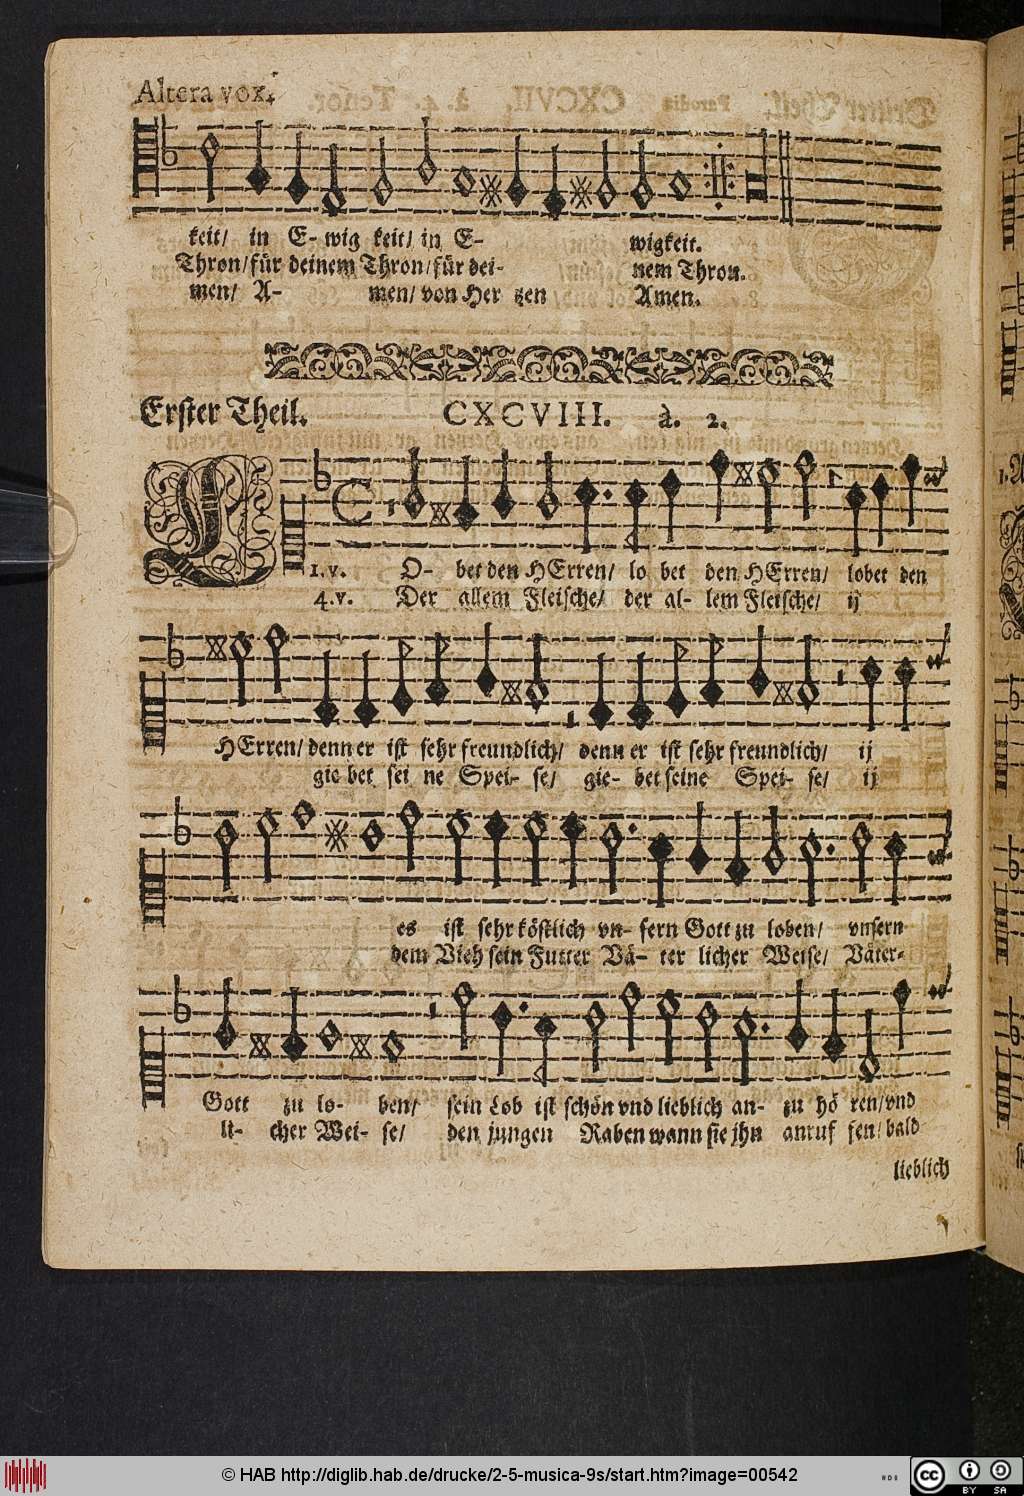 Altera vox.
keit/ in E- wig keit/ in E- wigkeit.
Thron/ für deinem Thron/ für dei- nem Thron.
men/ A- men/ von Her tzen Amen.
Erster Theil. CXCVIII. à. 2.
1.v. LO- bet den HErren/ lo bet den HErren/ lobet den
4.v. Der allem Fleische/ der al- lem Fleische/ ij
HErren/ denn er ist sehr freundlich/ denn er ist sehr freundlich/ ij
gie bet sei ne Spei- se/ gie- bet seine Spei- se/ ij
es ist sehr köstlich vn- sern Gott zu loben/ vnsern
dem Vieh sein Futter Vä- ter licher Weise/ Väter-
Gott zu lo- ben/ sein Lob ist schön vnd lieblich an- zu hö ren/ vnd
li- cher Wei- se/ den jungen Raben wann sie jhn anruf fen/ bald
lieblich
© HAB http://diglib.hab.de/drucke/2-5-musica-9s/start.htm?image=00542
cc BY SA